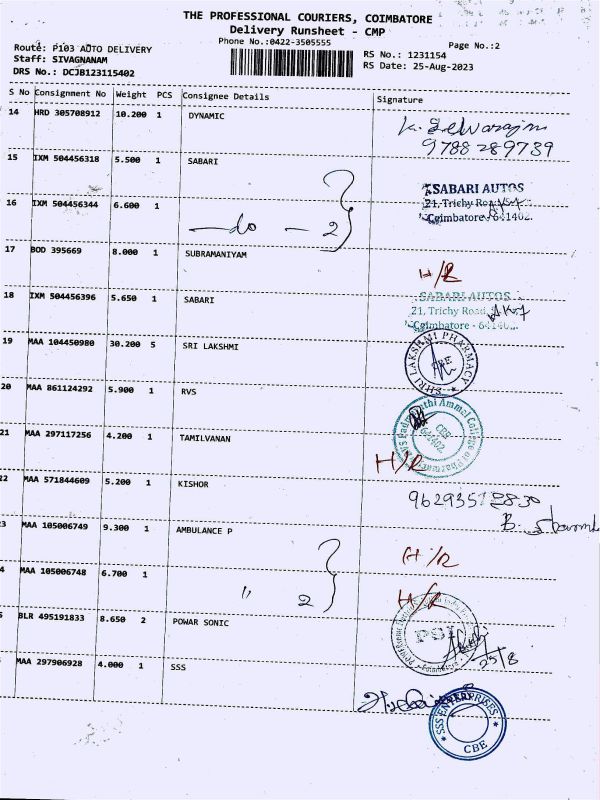 THE PROFESSIONAL COURIERS, COIMBATORE
Delivery Runsheet - CMP
Phone No.:0422-3505555
Page No.:2
Route: P103 AUTO DELIVERY
RS No.: 1231154
Staff: SIVAGNANAM
RS Date: 25-Aug-2023
DRS No.: DCJB123115402
S No Consignment No Weight PCS Consignee Details Signature
14 HRD 305708912 10.200 1 DYNAMIC
9788289739
15 IXM 504456318 5.500 1 SABARI
SABARI AUTOS
21, Trichy Road
Coimbatore - 641402.
16 IXM 504456344 6.600 1
—do — 2
17 BOD 395669 8.000 1 SUBRAMANIYAM
H/R
18 IXM 504456396 5.650 1 SABARI
SABARI AUTOS
21, Trichy Road,
Coimbatore - 6414
19 MAA 104450980 30.200 5 SRI LAKSHMI
SHRI LAKSHMI PHARMACY
CBE
20 MAA 861124292 5.900 1 RVS
CBE
641402.
21 MAA 297117256 4.200 1 TAMILVANAN
H/R
22 MAA 571844609 5.200 1 KISHOR
B.
3 MAA 105006749 9.300 1 AMBULANCE P
H/R
4 MAA 105006748 6.700 1
" 2
H/R
5 BLR 495191833 8.650 2 POWAR SONIC
PSI
25/8
MAA 297906928 4.000 1 SSS
SSS ENTERPRISES
CBE